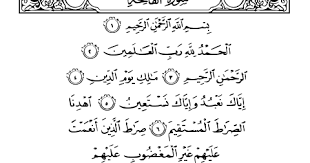 سُورَةُ ٱلْفَاتِحَةِ
بِسْمِ ٱللَّهِ ٱلرَّحْمَٰنِ ٱلرَّحِيمِ ١
ٱلْحَمْدُ لِلَّهِ رَبِّ ٱلْعَٰلَمِينَ ٢
ٱلرَّحْمَٰنِ ٱلرَّحِيمِ ٣ مَٰلِكِ يَوْمِ ٱلدِّينِ ٤
إِيَّاكَ نَعْبُدُ وَإِيَّاكَ نَسْتَعِينُ ٥ ٱهْدِنَا
ٱلصِّرَٰطَ ٱلْمُسْتَقِيمَ ٦ صِرَٰطَ ٱلَّذِينَ أَنْعَمْتَ
عَلَيْهِمْ غَيْرِ ٱلْمَغْضُوبِ عَلَيْهِمْ